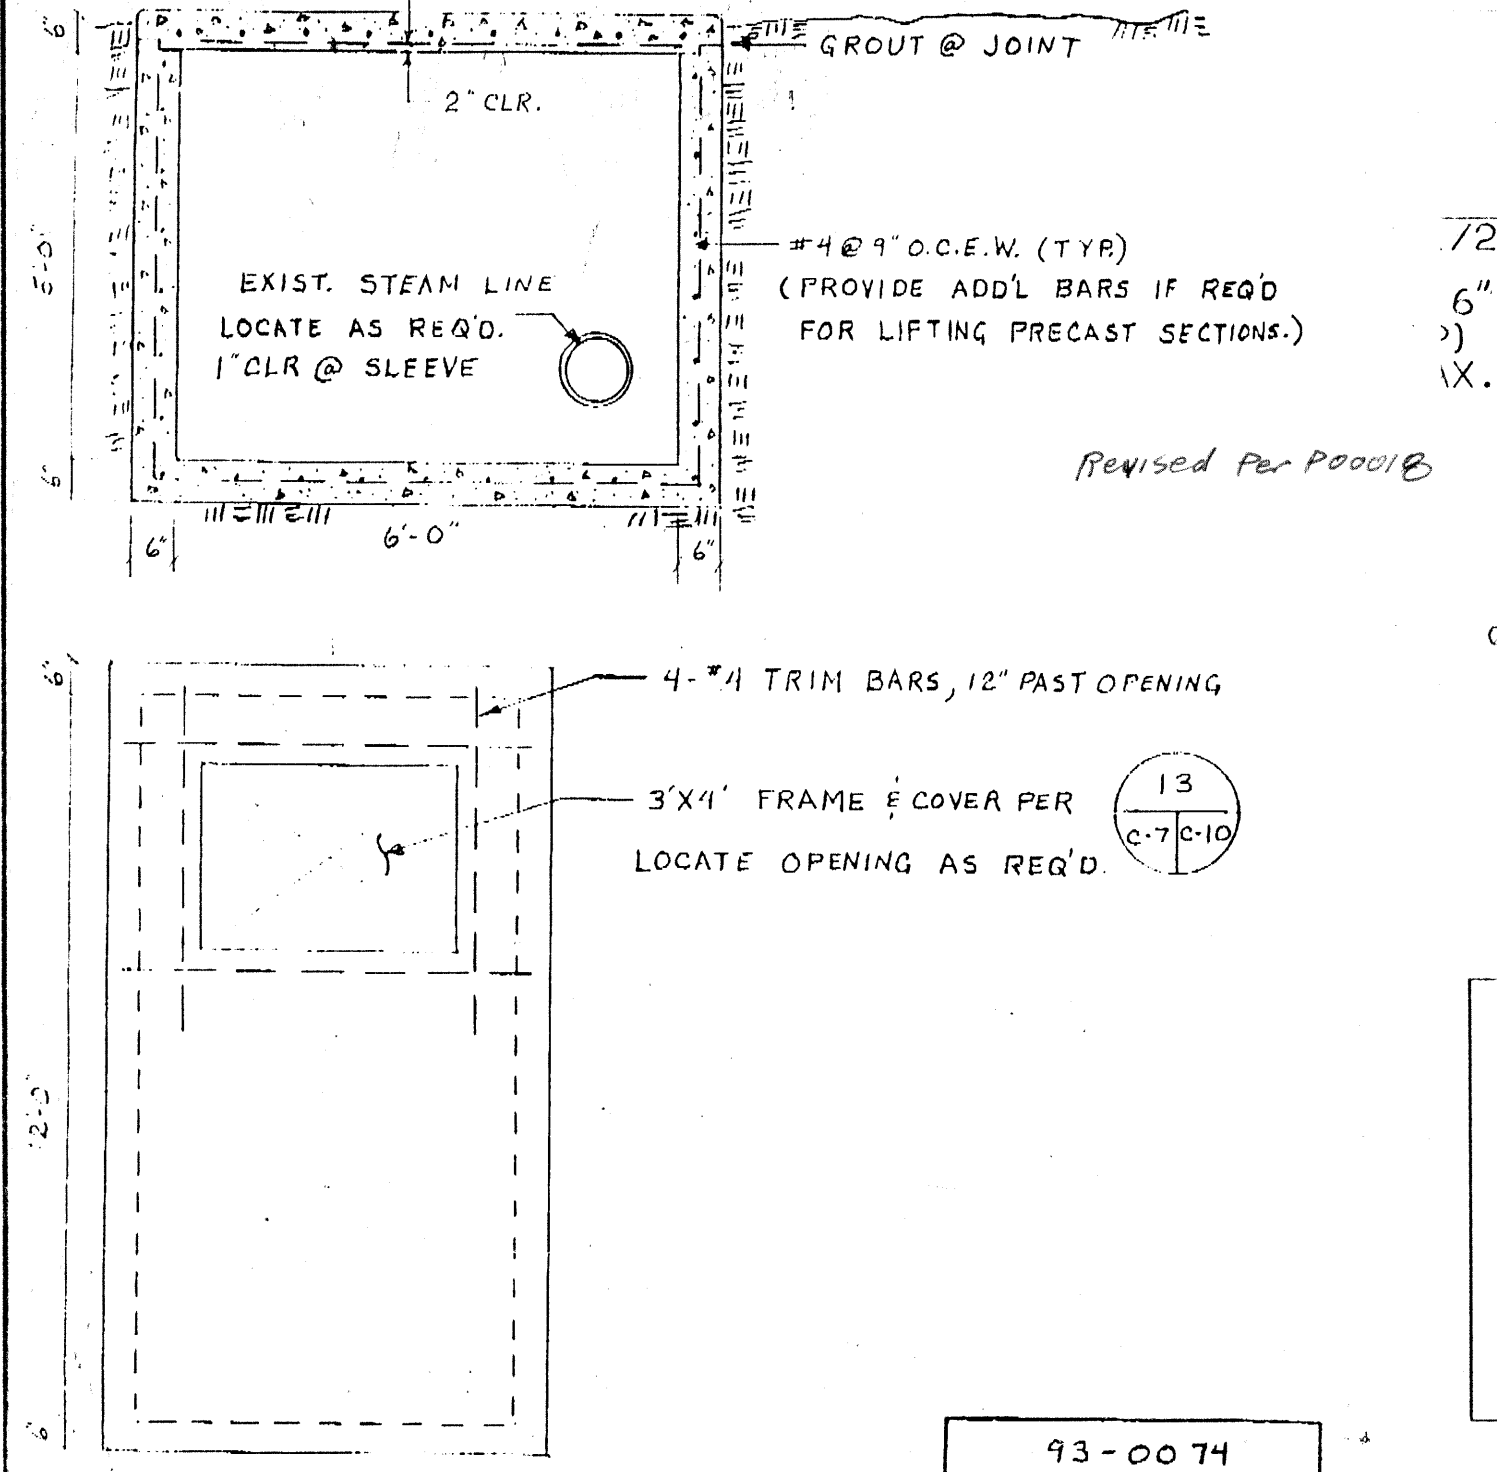 6"
GROUT @ JOINT
2" CLR.
#4 @ 9" O.C.E.W. (TYP.)
(PROVIDE ADD'L BARS IF REQ'D
FOR LIFTING PRECAST SECTIONS.)
EXIST. STEAM LINE
LOCATE AS REQ'D.
1" CLR @ SLEEVE
5'-0"
6"
6"
6'-0"
6"
/2
6"
)
X.
Revised Per P00018
6"
4-#4 TRIM BARS, 12" PAST OPENING
3'X4' FRAME & COVER PER
LOCATE OPENING AS REQ'D.
13
C-7 C-10
12'-0"
6"
93-0074